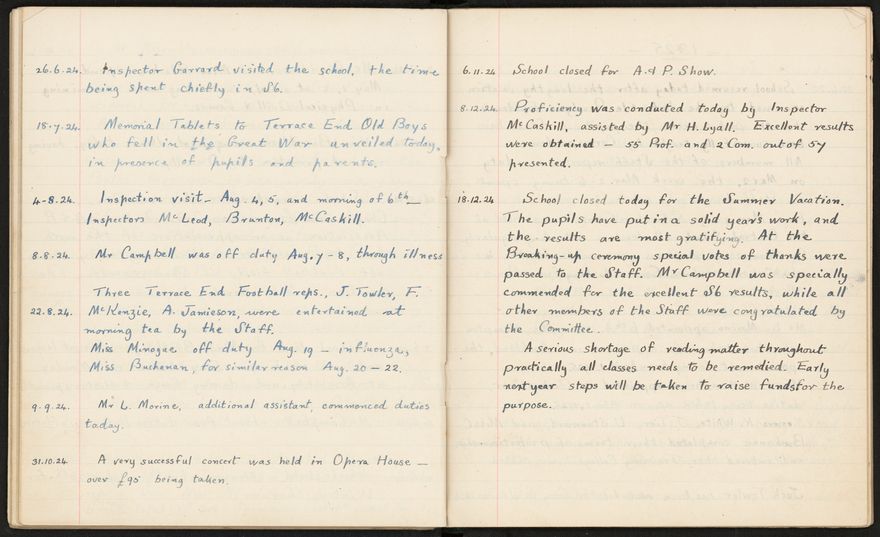 26.6.24. Inspector Garrard visited the school, the time
being spent chiefly in S6.
18.7.24. Memorial Tablets to Terrace End Old Boys
who fell in the Great War unveiled today,
in presence of pupils and parents.
4-8.24. Inspection visit - Aug. 4, 5, and morning of 6th —
Inspectors McLeod, Brunton, McCaskill.
8.8.24. Mr Campbell was off duty Aug. 7 - 8, through illness
Three Terrace End Football reps., J. Towler, F.
22.8.24. McKenzie, A. Jamieson, were entertained at
morning tea by the Staff.
Miss Minogue off duty Aug. 19 - influenza,
Miss Buchanan, for similar reason Aug. 20 - 22.
9.9.24. Mr L. Morine, additional assistant, commenced duties
today.
31.10.24 A very successful concert was held in Opera House —
over £95 being taken.
6.11.24 School closed for A. & P. Show.
8.12.24. Proficiency was conducted today by Inspector
McCaskill, assisted by Mr H. Lyall. Excellent results
were obtained - 55 Prof. and 2 Com. out of 57
presented.
18.12.24 School closed today for the Summer Vacation.
The pupils have put in a solid year's work, and
the results are most gratifying. At the
Breaking-up ceremony special votes of thanks were
passed to the Staff. Mr Campbell was specially
commended for the excellent S6 results, while all
other members of the Staff were congratulated by
the Committee.
A serious shortage of reading matter throughout
practically all classes needs to be remedied. Early
next year steps will be taken to raise funds for the
purpose.